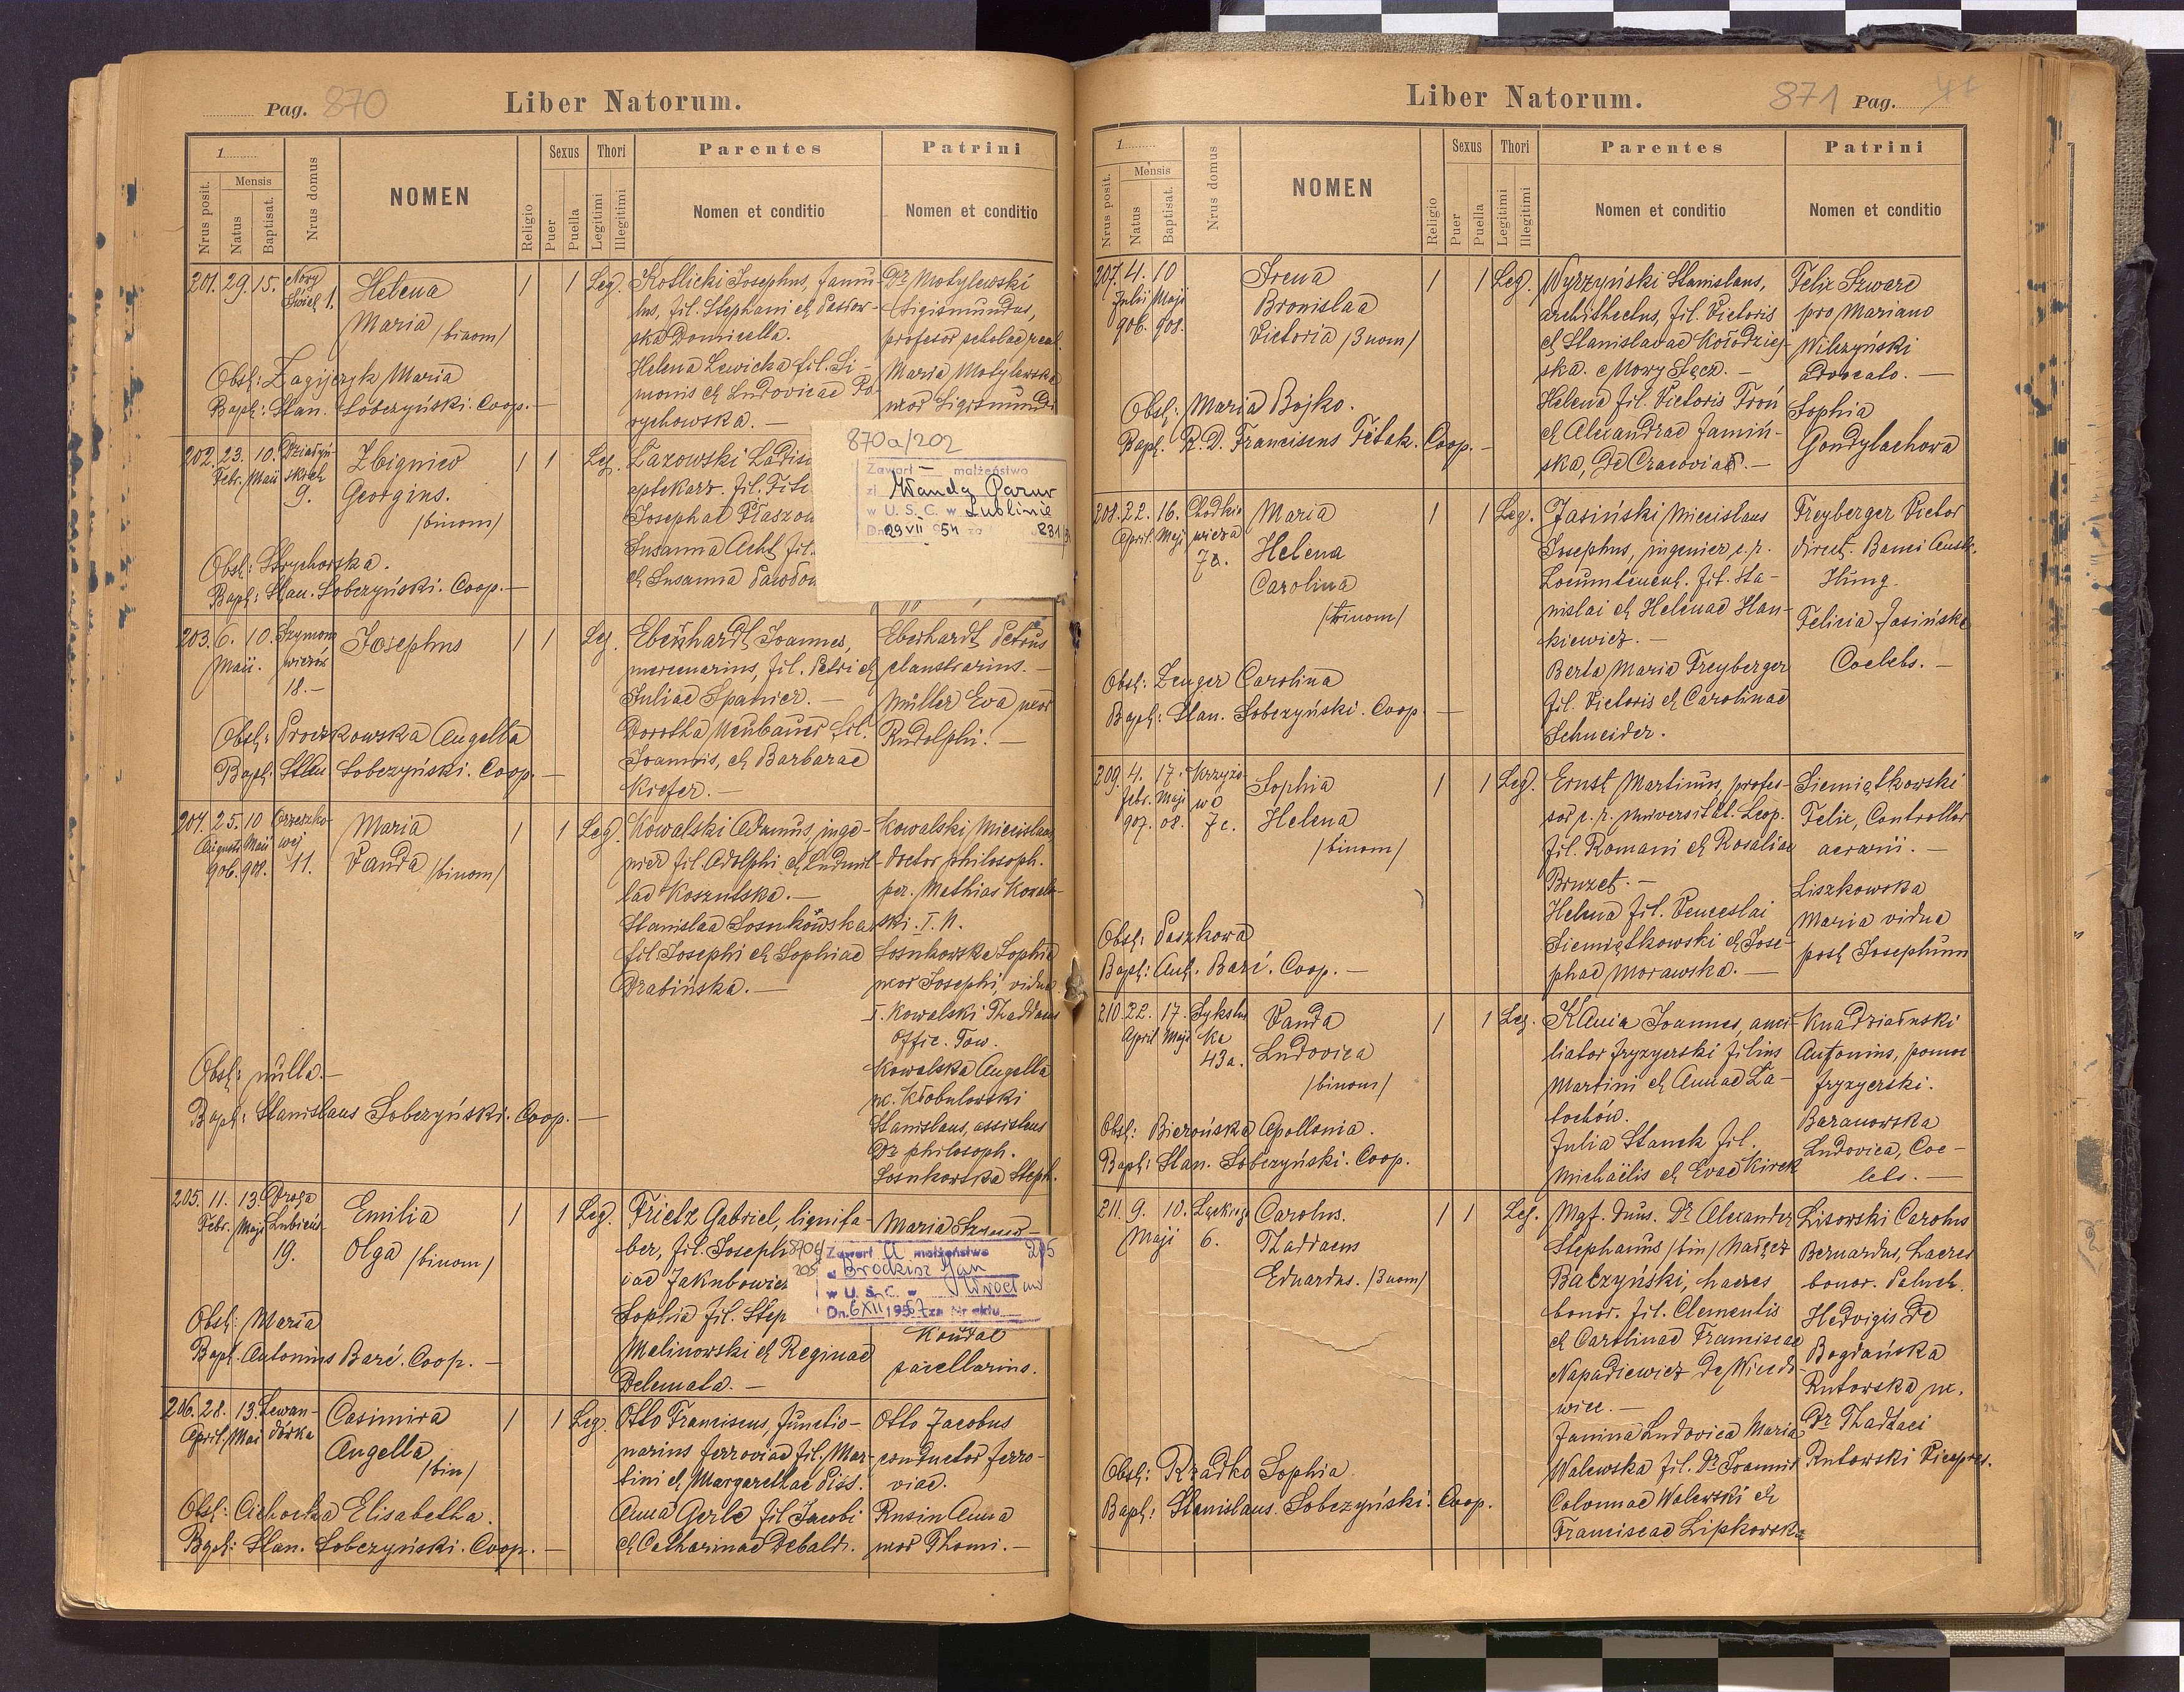 Pag. 870 Liber Natorum.
1
Nrus posit.
Mensis
Natus
Baptisat.
Nrus domus
NOMEN
Religio
Sexus
Puer
Puella
Thori
Legitimi
Illegitimi
Parentes
Nomen et conditio
Patrini
Nomen et conditio
201. 29. 15. Nowy
Świat 1.
Helena
Maria /binom/
1 1 Leg.
Kotlicki Josephus, famu-
lus, fil. Stephani et
ska Domicella.
Helena Lewicka fil. Si-
monis et Ludovicae Po-
rychowska. —
Dr Motylewski
Sigismundus,
profesor scholae real.
Maria Motylewska
uxor Sigismundi
Obst: Zagijczyk Maria
Bapt: Stan. Sobczyński. Coop. —
202. 23. 10.
Febr. Maii
9.
Zbigniew
Georgius.
/binom/
1 1 Leg.
Łazowski Ladis
aptekarz. fil.
Josephae Płaszow
Susanna Acht fil.
et Susanna
870a/202
Zawarł — małżeństwo
z Wandą
w U. S. C. w Lublinie
Dn 29 VII 954 za 231
Obst: Strychorska.
Bapt: Stan. Sobczyński. Coop. —
203. 6. 10. Szymono
Maii. wiczów
18. —
Josephus
1 1 Leg.
Eberhardt Joannes,
mercenarius, fil. Petri et
Juliae Spanier. —
Dorothea Neubauer fil.
Joannis, et Barbarae
Kiefer. —
Eberhardt Petrus
claustrarius. —
Müller Eva uxor
Rudolphi. —
Obst: Proczkowska Angella
Bapt: Stan Sobczyński. Coop. —
204. 25. 10 Orzeszko-
Augusti Maii wej
906. 908. 11.
Maria
Vanda /binom/
1 1 Leg.
Kowalski Adamus, inge-
nier fil. Adolphi et Ludmil-
lae Koszutska. —
Stanislaa Sosnkowska
fil. Josephi et Sophiae
Drabińska. —
Kowalski Miecislaus
doctor philosoph.
per. Mathias Kowal-
ski. I. N.
Sosnkowska Sophia
uxor Josephi, vidua
I. Kowalski Thaddaeus
Offic. Tow.
Kowalska Angella
ux. Kłobukowski
Stanislaus, assistens
Dr philosoph.
Sosnkowska Steph.
Obst: nulla. —
Bapt: Stanislaus Sobczyński. Coop. —
205. 11. 13. Droga
Febr. Maji Lubień-
19.
Emilia
Olga /binom/
1 1 Leg.
Frietz Gabriel, lignifa-
ber, fil. Joseph
iae Jakubowicz
Sophia fil. Step
Malinowski et Reginae
Delemata. —
Maria
Koudal
pacellarius.
Zawarł a małżeństwo
z Brodkisz Jan
w U. S. C. w Wrocław
Dn. 6 XII 1957 za Nr aktu
205
Obst: Maria
Bapt. Antonius Baré. Coop. —
206. 28. 13. Lewan-
April. Mai dówka
Casimira
Angella
/bin/
1 1 Leg.
Otto Franciscus, functio-
narius ferroviae fil. Mar-
tini et Margarethae Piss.
Anna Gerle fil Jacobi
et Catharinae Debald.
Otto Jacobus
conductor ferro-
viae.
Rusin Anna
uxor Thomi. —
Obst: Cichocka Elisabetha.
Bapt: Stan. Sobczyński. Coop. —
Liber Natorum. 871 Pag.
1
Nrus posit.
Mensis
Natus
Baptisat.
Nrus domus
NOMEN
Religio
Sexus
Puer
Puella
Thori
Legitimi
Illegitimi
Parentes
Nomen et conditio
Patrini
Nomen et conditio
207. 4. 10
Julii Maji
906. 908.
Irena
Bronislaa
Victoria /3 nom/
1 1 Leg.
Wyrzyński Stanislaus,
archithectus, fil. Victoris
et Stanislavae Kołodziej-
ska. Nowy Sącz. —
Helena fil. Victoris Troń
et Alexandrae Jamiń-
ska, de Cracovia. —
Felix Szwarc
pro Mariano
Wilczyński
advocato. —
Sophia
Gondylachowa
Obst: Maria Bojko.
Bapt. R. D. Franciscus Tětak. Coop. —
208. 22. 16. Chodkie
April. Maji wicza
7a.
Maria
Helena
Carolina
/trinom/
1 1 Leg.
Jasiński Miecislaus
Josephus, ingenier c. r.
Locumtenent. fil. Sta-
nislai et Helenae Han-
kiewicz. —
Berta Maria Freyberger
fil. Victoris et Carolinae
Schneider.
Freyberger Victor
direct. Banci Austr.
Hung.
Felicia Jasińska
Coelebs. —
Obst: Zenger Carolina
Bapt: Stan. Sobczyński. Coop. —
209. 4. 17. Krzyżo
Febr. Maji wa
907. 08. 7c.
Sophia
Helena
/binom/
1 1 Leg.
Ernst Martinus, profes-
sor c. r. universitat. Leop.
fil. Romani et Rosaliae
Bruzet. —
Helena fil. Venceslai
Siemiątkowski et Jose-
phae Morawska. —
Siemiątkowski
Felix, Controllor
aerarii. —
Liszkowska
Maria vidua
post Josephum
Obst: Paszkowa
Bapt: Ant. Baré. Coop. —
210. 22. 17. Sykstus
April Maji ka
43a.
Vanda
Ludovica
/binom/
1 1 Leg.
Kania Joannes, auxi-
liator fryzyerski filius
Martini et Annae La-
tochów.
Julia Stanek fil.
Michaëlis et Evae Kirek
Antonius, pomoc
fryzyerski.
Baranowska
Ludovica, Coe-
lebs. —
Obst: Bierońska Apollonia.
Bapt: Stan. Sobczyński. Coop.
211. 9. 10. Łąckiego
Maji 6.
Carolus.
Thaddaeus
Eduardus. /3 nom/
1 1 Leg.
Mgf. Dnus. Dr Alexander
Stephanus /bin/ Nałęcz
Bałzyński, haeres
bonor. fil. Clementis
et Carolinae Franciscae
Napadiewicz de Więcko
wice. —
Janina Ludovica Maria
Walewska fil. Dr Joannis
Colonnae Walewski et
Franciscae Lipkowska
Lisowski Carolus
Bernardus, haeres
bonor.
Hedvigis de
Bogdańska
Rutowska ux.
Dr Thadaei
Rutowski Vicepres.
Obst: Rządko Sophia.
Bapt: Stanislaus. Sobczyński. Coop.